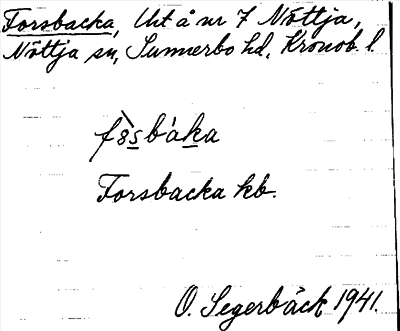 Forsbacka, Ut å nr 7 Nöttja,
Nöttja sn, Sunnerbo hd, Kronob. l.
fòsbáka
Forsbacka kb.
O. Segerbäck 1941.